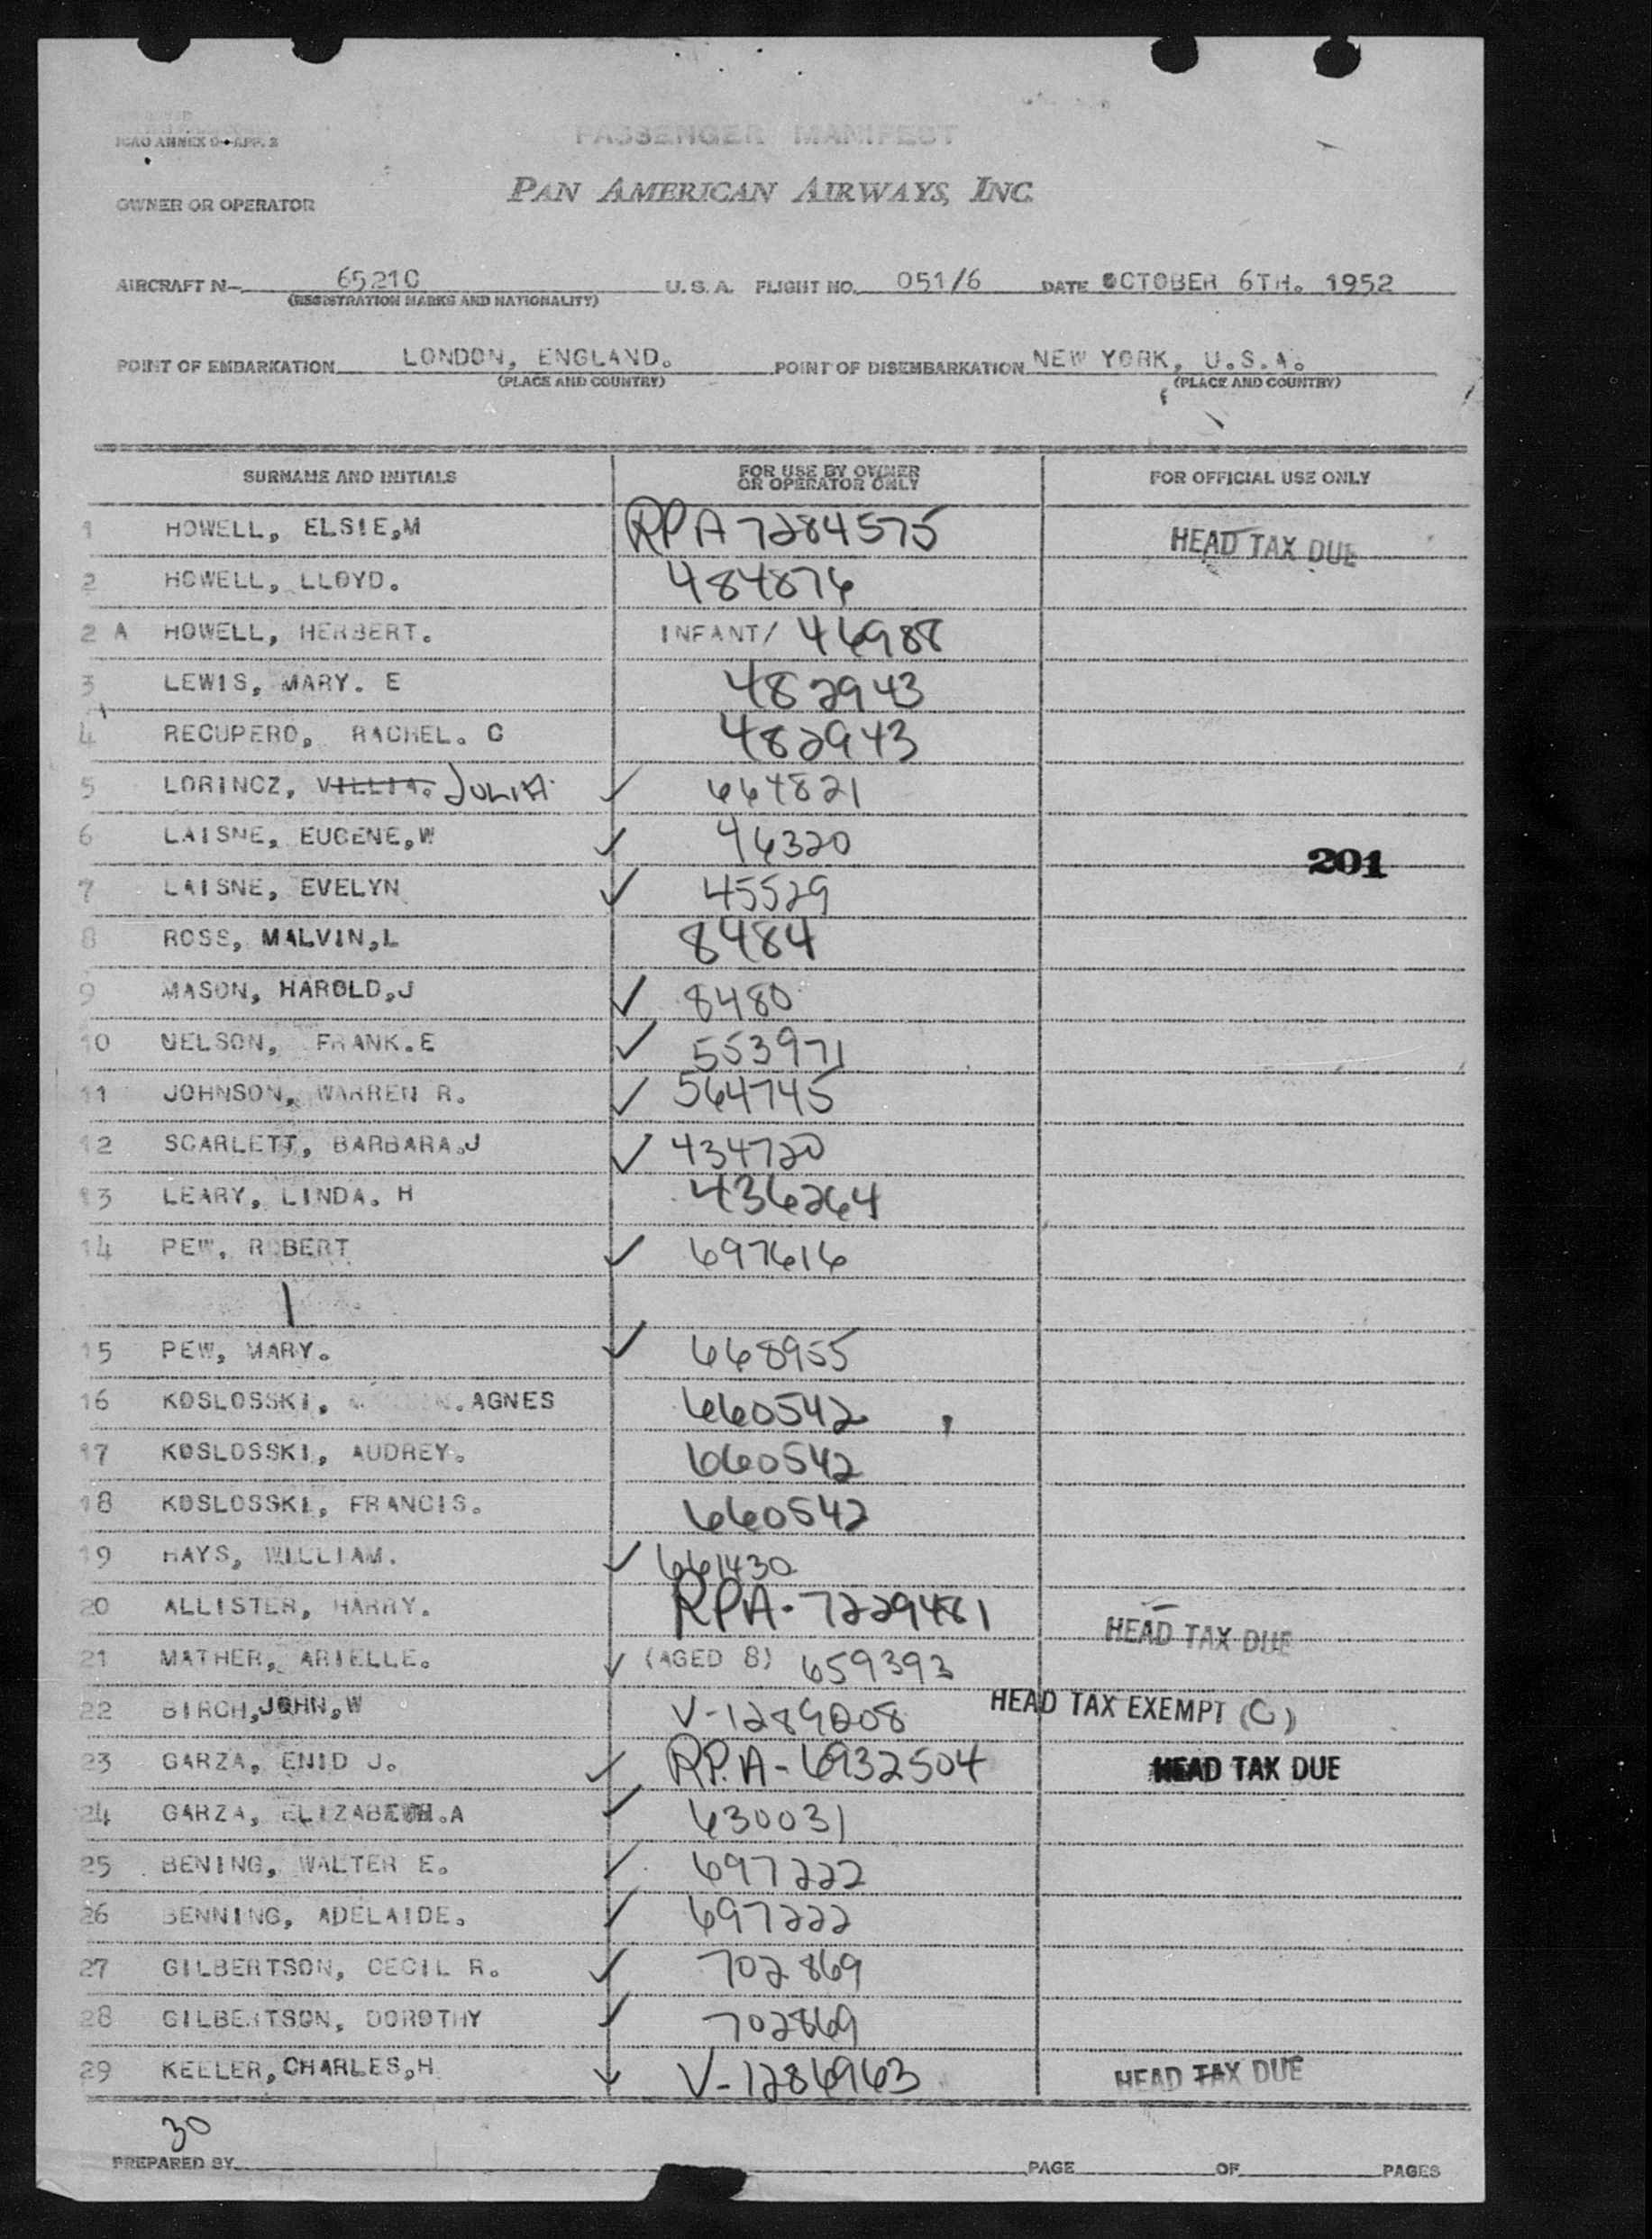 ICAO ANNEX 9-APP. 3
PASSENGER MANIFEST
OWNER OR OPERATOR PAN AMERICAN AIRWAYS, INC.
AIRCRAFT N- 65210 U.S.A. FLIGHT NO. 051/6 DATE OCTOBER 6TH. 1952
(REGISTRATION MARKS AND NATIONALITY)
POINT OF EMBARKATION LONDON, ENGLAND. POINT OF DISEMBARKATION NEW YORK, U.S.A.
(PLACE AND COUNTRY) (PLACE AND COUNTRY)
SURNAME AND INITIALS FOR USE BY OWNER OR OPERATOR ONLY FOR OFFICIAL USE ONLY
1 HOWELL, ELSIE,M RPA 7284575 HEAD TAX DUE
2 HOWELL, LLOYD. 484876
2 A HOWELL, HERBERT. INFANT/ 46988
3 LEWIS, MARY. E 482943
4 RECUPERO, RACHEL. C 482943
5 LORINCZ, VILLIA. JULIA ✓ 664821
6 LAISNE, EUGENE,W ✓ 46320
201
7 LAISNE, EVELYN ✓ 45529
8 ROSS, MALVIN,L 8484
9 MASON, HAROLD,J ✓ 8480
10 NELSON, FRANK.E ✓ 553971
11 JOHNSON, WARREN R. ✓ 564745
12 SCARLETT, BARBARA.J ✓ 434720
13 LEARY, LINDA. H 436264
14 PEW, ROBERT ✓ 697616
15 PEW, MARY. ✓ 668955
16 KOSLOSSKI, . AGNES 660542
17 KOSLOSSKI, AUDREY. 660542
18 KOSLOSSKI, FRANCIS. 660542
19 HAYS, WILLIAM. ✓ 661430
20 ALLISTER, HARRY. RPA-7229481 HEAD TAX DUE
21 MATHER, ARIELLE. ✓ (AGED 8) 659393
22 BIRCH,JOHN,W V-1289208 HEAD TAX EXEMPT (C)
23 GARZA, ENID J. ✓ RPA-6932504 HEAD TAX DUE
24 GARZA, ELIZABETH.A ✓ 630031
25 BENING, WALTER E. ✓ 697222
26 BENNING, ADELAIDE. ✓ 697222
27 GILBERTSON, CECIL R. ✓ 702869
28 GILBERTSON, DOROTHY ✓ 702869
29 KELLER,CHARLES,H ✓ V-1286963 HEAD TAX DUE
30
PREPARED BY PAGE OF PAGES